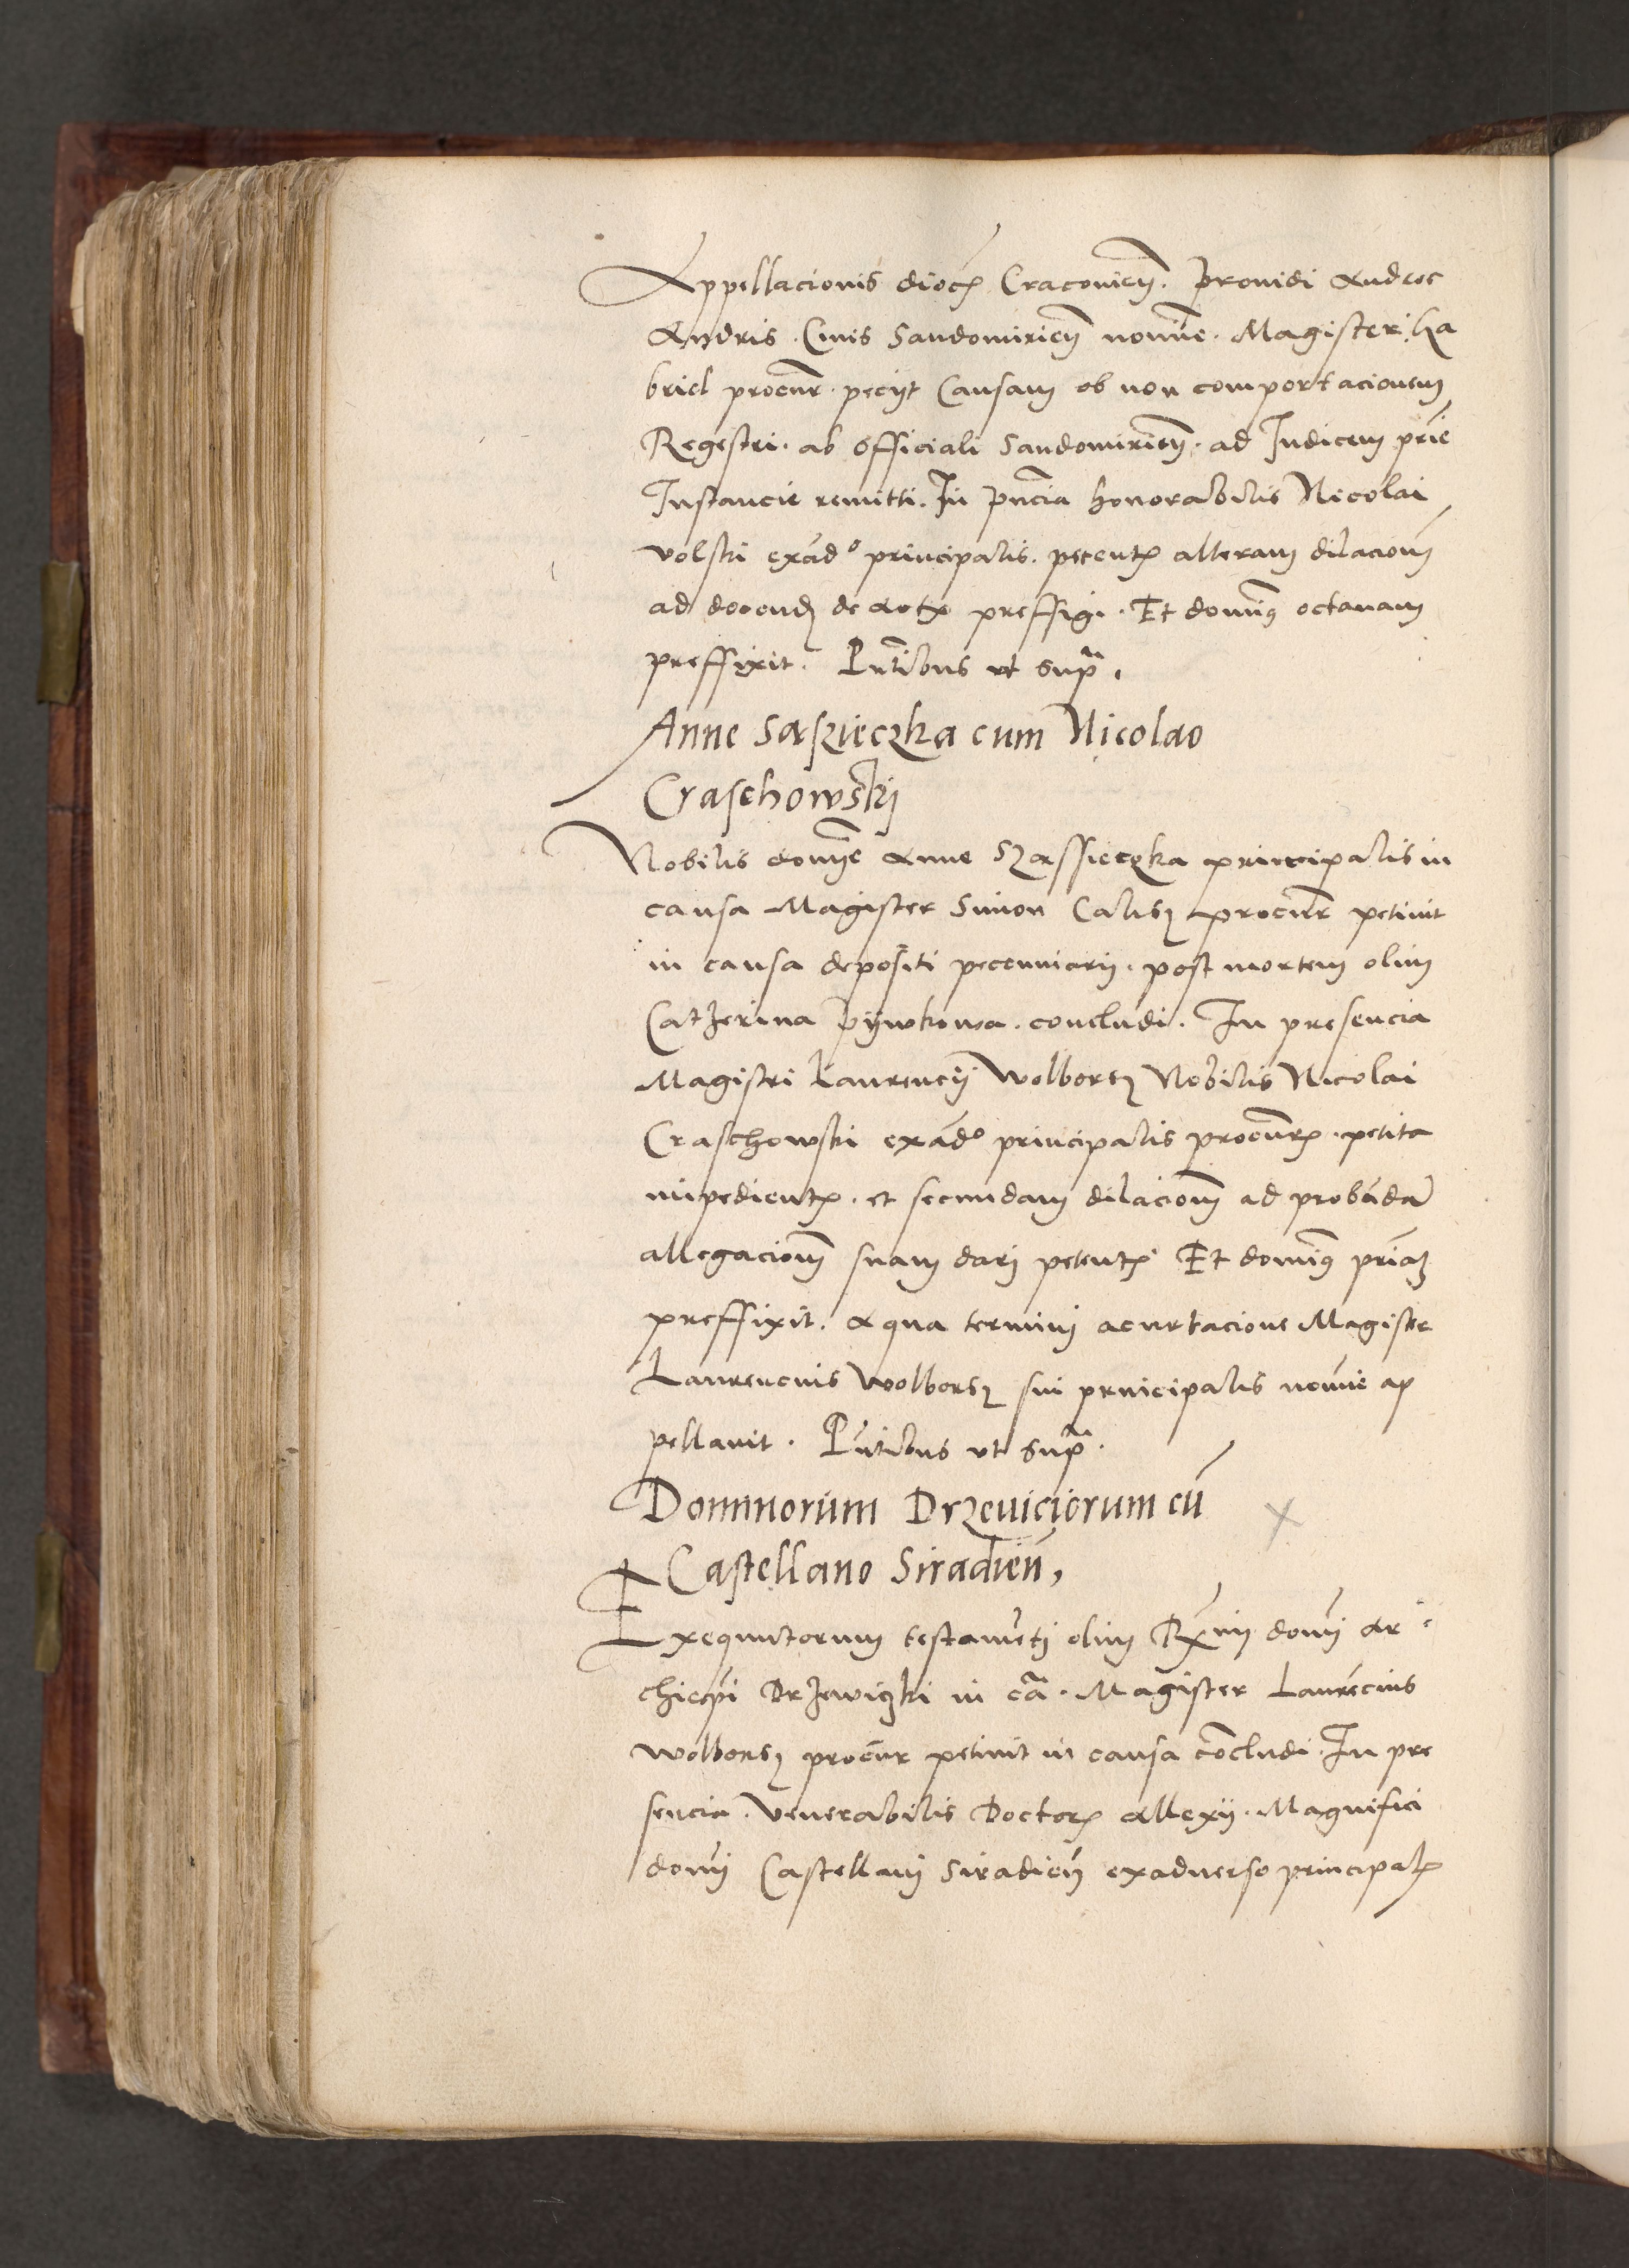 Appellacionis dioc̄ Cracovieñ. Providi Andree
Andris. Civis Sandomirieñ nomine. Magister Ga
briel procur̄. peciit Causam ob non comportacionem
Regestri. ab officiali Sandomirieñ. ad Iudicem prīe
Instancie remitti. In pn̄cia honorabilis Nicolai
Volski exad̄o principalis. petent̄ alteram dilacioñ
ad docend̄ de preffigi. Et domiñ octavam
preffixit. Pn̄tibus ut supᵃ.
Anne Saszieczka cum Nicolao
Craschowskij
Nobilis domīe Anne Szassieczka principalis in
causa Magister Simon Calisz procur̄ petivit
in causa depositi peccuniarij. post mortem olim
Catzerina Pijwkowa. concludi. In presencia
Magistri Laurencij Wolborz Nobilis Nicolai
Craschowski exad̄o principalis procur̄. petita
impedient̄. et secundam dilacioñ ad probandā
allegacioñ suam darj petent̄ Et domiñ primā
preffixit. A qua termini acurtacione Magister
Laurencius Wolborz sui principalis nomīe ap
pellavit. Pn̄tibus ut supᵃ.
Dominorum Drzeviciorum cū
Castellano Siradieñ,
Exequutorum testamētj olim Rx̄mi domī Ar
chiepī Drzewiczki in cā. Magister Laurēcius
Wolborz procur̄ petivit in causa cōcludi. In pre
sencia. Venerabilis Doctor̄ Allexii. Magnifici
domī Castellani Siradieñ exadverso principal̄